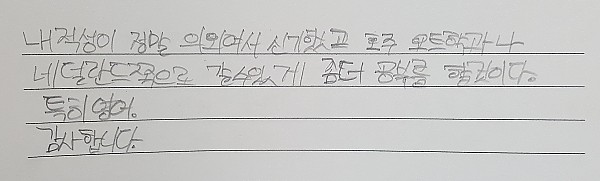 내 적성이 정말 의외여서 신기했고 호주 모트학과나
네덜란드쪽으로 갈수있게 좀더 공부를 할것이다.
특히 영어.
감사합니다.